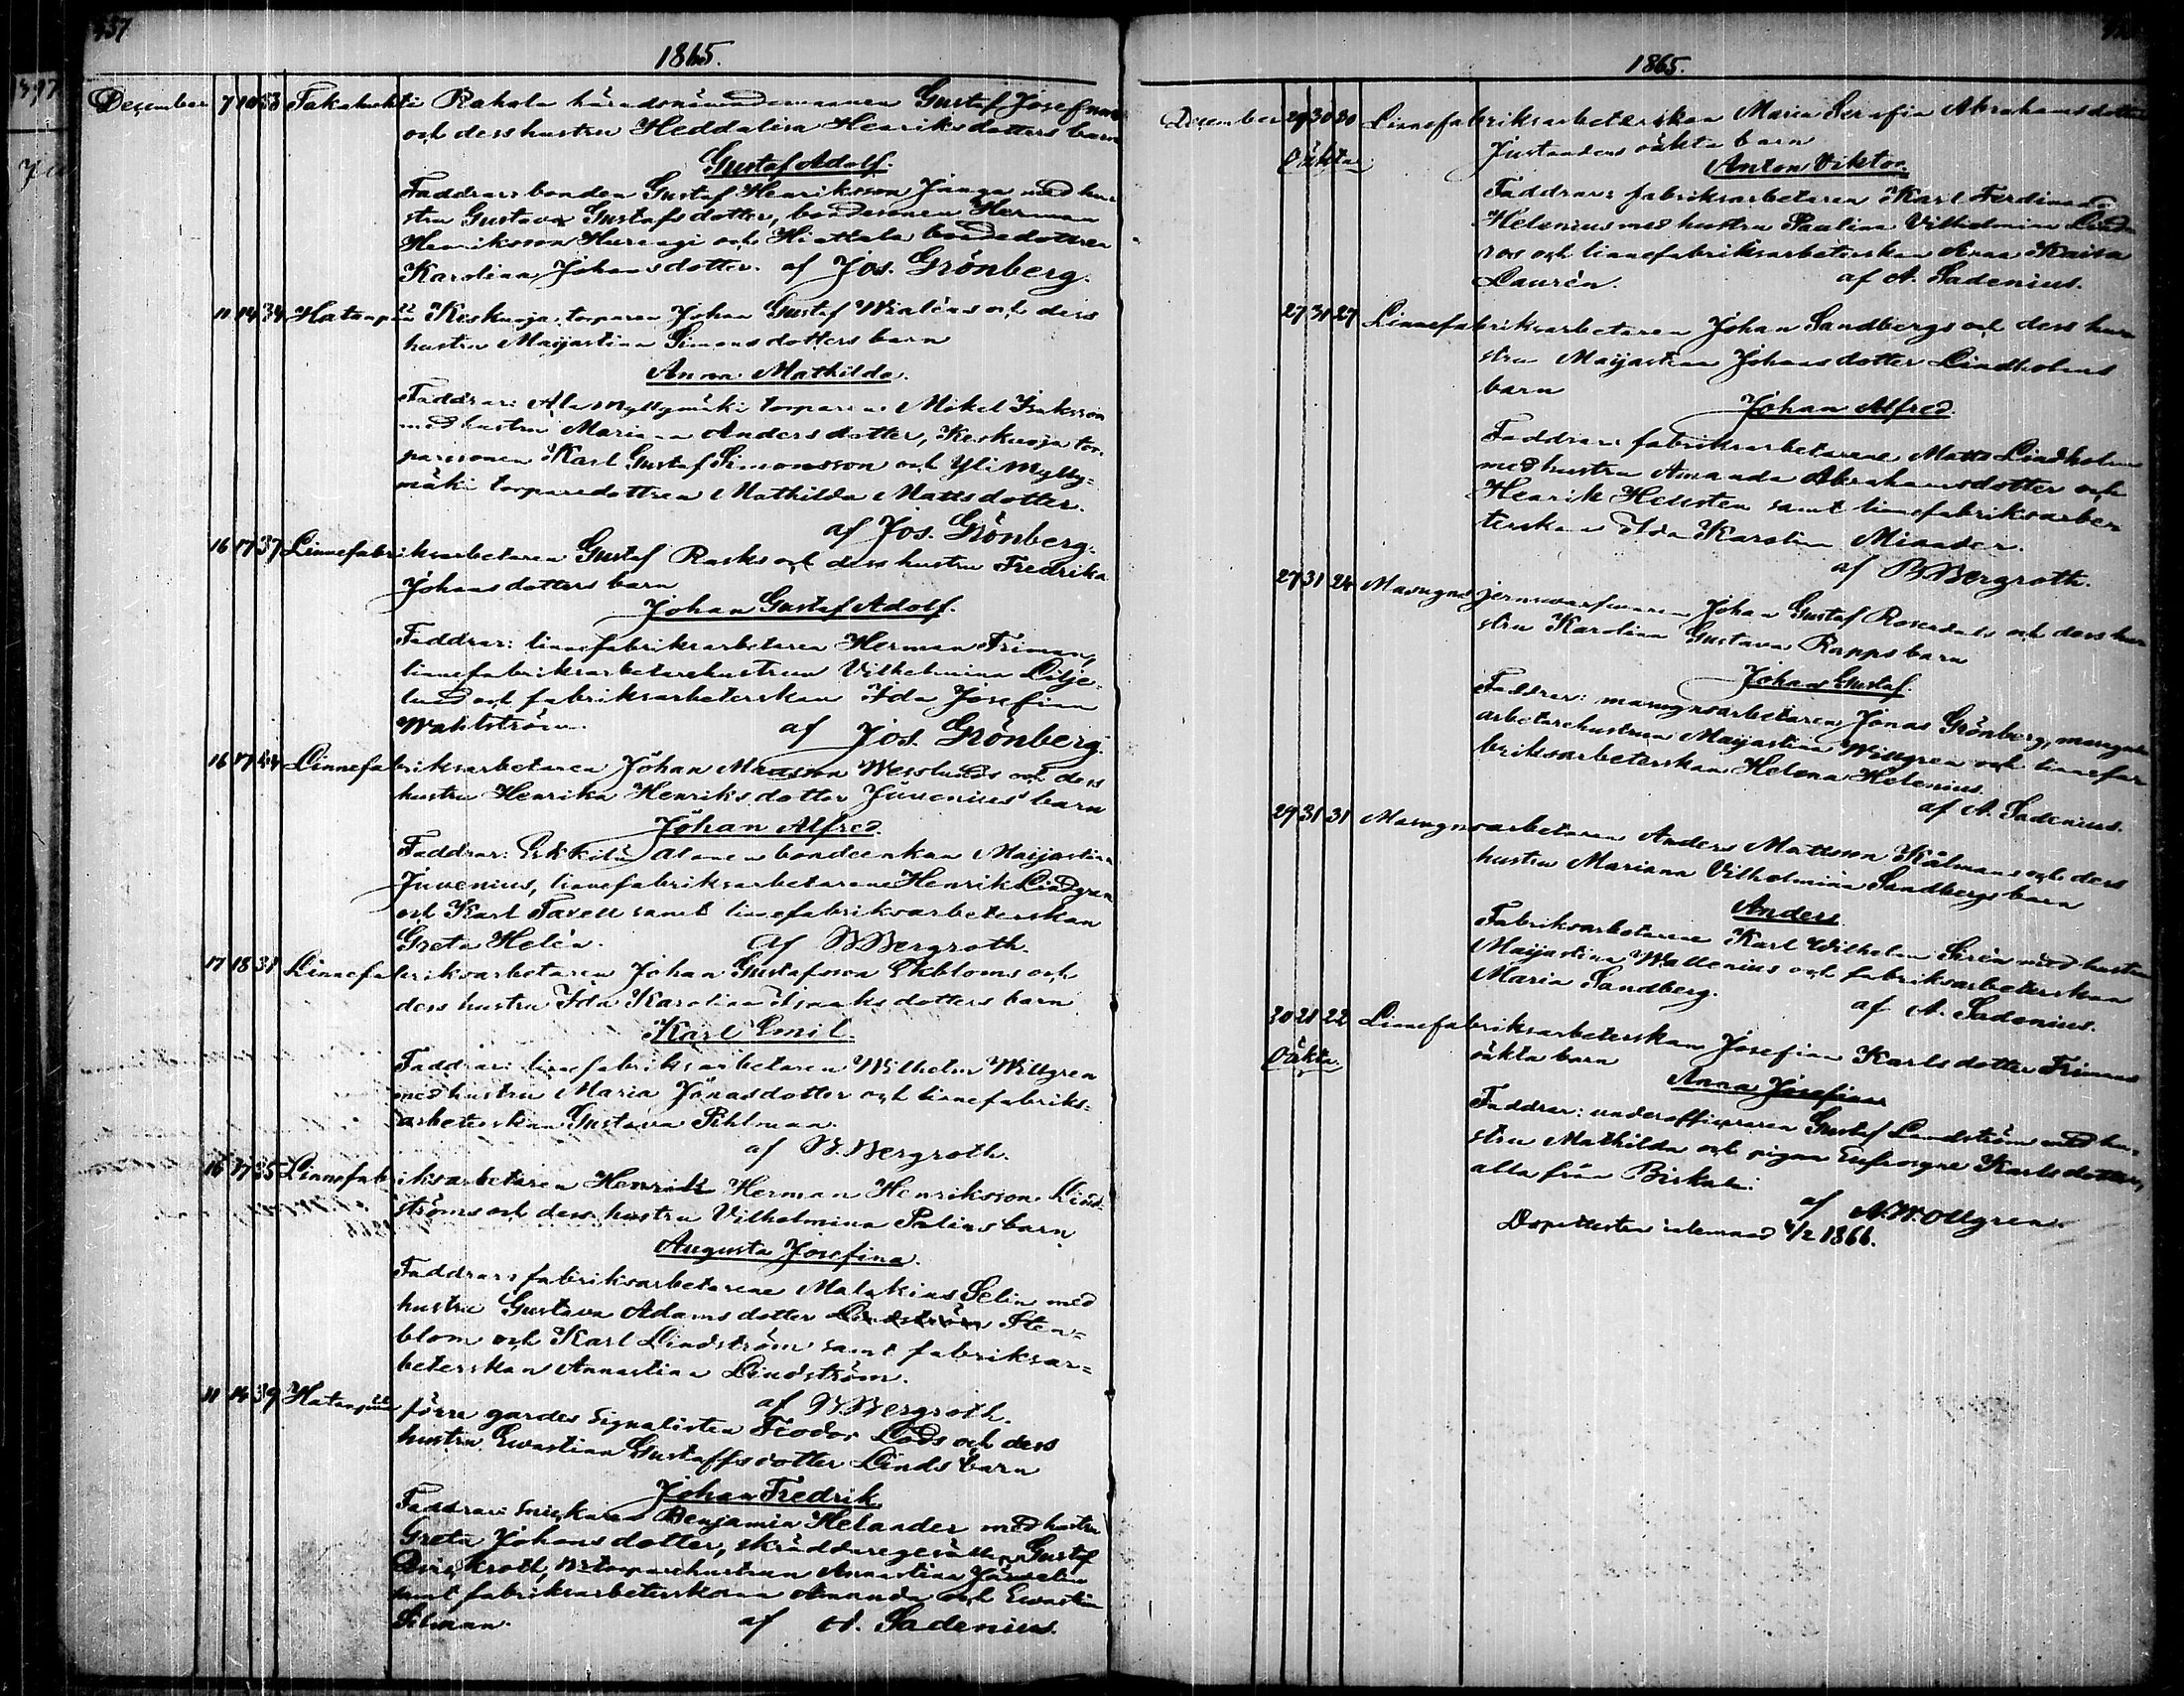 457
1865.
December 7 10 38 Takahuhti Rahola häradsnämndemannen Gustaf Josefssons
och dess hustru Heddalisa Henriksdotters barn
Gustaf Adolf.
Faddrar: bonden Gustaf Henriksson Jünga med hu-
stru Gustava Gustafsdotter, bondesonen Herman
Henriksson och Hiettala bondedottren
Karolina Johansdotter. af Jos. Grönberg.
11 14 34 Hatanpää Keskuoja torparen Johan Gustaf och dess
hustru Maijastina Simonsdotters barn
Anna Mathilda.
Faddrar: Ala myllymäki torparen Mikel Isaksson
med hustru Mariana Andersdotter, Keskuoja tor-
paresonen Karl Gustaf Simonsson och Yli Mylly-
mäki torparedottren Mathilda Mattsdotter.
af Jos. Grönberg.
16 17 37 Linnefabriksarbetaren Gustaf Rasks och dess hustru Fredrika
Johansdotters barn
Johan Gustaf Adolf.
Faddrar: linnefabriksarbetaren Herman Friman,
linnefabriksarbetarehustrun Vilhelmina Lilje-
lund och fabriksarbeterskan Ida Josefina
Wahlström. af Jos. Grönberg.
16 17 44 Linnefabriksarbetaren Johan Matsson Wesslunds och dess
hustru Henrika Henriksdotter Juvenius' barn
Johan Alfred.
Faddrar: Erkkilä bondeenkan Maijastina
Juvenius, linnefabriksarbetarene Henrik Lindgren
och Karl Taxell samt linnefabriksarbeterskan
Greta Helén. af B Bergroth.
17 18 31 Linnefabriksarbetaren Johan Gustafsson Ekbloms och
dess hustru Ida Karolina Isaaksdotters barn
Karl Emil.
Faddrar: linnefabriksarbetaren Wilhelm Willgren
med hustru Maria Jonasdotter och linnefabriks-
arbeterskan Gustava Pihlman.
af B. Bergroth.
16 17 35 Linnefabriksarbetaren Henrik Herman Henriksson Lind-
ströms och dess hustru Vilhelmina Palins barn
Augusta Josefina.
Faddrar: fabriksarbetarene Malakias Selin med
hustru Gustava Adamsdotter Lindström Sten-
blom och Karl Lindström samt fabriksar-
beterskan Annastina Lindström.
af B Bergroth.
11 14 39 Hatanpää förre gardes signalisten Feodor Lods och dess
hustru Evastina Gustafsdotter Linds barn
Johan Fredrik
Faddrar: snickaren Benjamin Helander med hustru
Greta Johansdotter, skräddaregesällen Gustaf
torparehustrun Annastina
samt fabriksarbeterskorna Amanda och Evastina
af A. Sadenius.
1865.
December 29 30 20 Linnefabriksarbeterskan Maria Serafia Abrahamsdotter
Oäkta Justanders oäkta barn
Anton Viktor.
Faddrar: fabriksarbetaren Karl Ferdinand
Helenius med hustru Paulina Vilhelmina Lind-
ros och linnefabriksarbeterskan Anna Kaisa
Laurén. af A. Sadenius.
27 31 27 Linnefabriksarbetaren Johan Sandbergs och dess hu-
stru Maijastina Johansdotter Lindholms
barn
Johan Alfred.
Faddrar: fabriksarbetarene Matts Lindholm
med hustru Amanda Abrahamsdotter och
Henrik Hellsten samt linnefabriksarbe-
terskan Ida Karolina Minder.
af B Bergroth.
27 31 24 Masugns jernsvarfvaren Johan Gustaf Rosendals och dess hu-
stru Karolina Gustava Rapps barn
Johan Gustaf.
Faddrar: masugnsarbetaren Jonas Grönberg, masugns-
arbetarehustrun Maijastina Willgren och linnefa-
briksarbeterskan Helena Helenius.
af A. Sadenius.
29 31 31 Masugnsarbetaren Anders Mattsson Kålmans och dess
hustru Mariana Vilhelmina Sandbergs barn
Anders
Fabriksarbetarene Karl Wilhelm Sirén med hustru
Maijastina Wallenius och fabriksarbeterskan
Maria Sandberg. af A. Sadenius.
30 31 22 Linnefabriksarbeterskan Josefina Karlsdotter Frimans
Oäkta oäkta barn
Anna Josefina
Faddrar: underofficeraren Gustaf Lindström med hu-
stru Mathilda och pigan Eufrosyne Karlsdotter,
alla från Birkala.
af
1866.